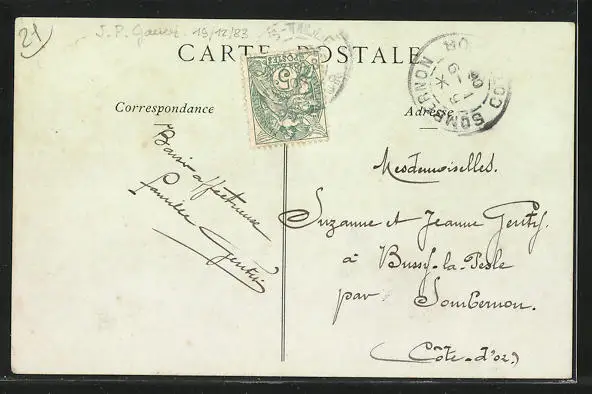 21
19/12/83
CARTE POSTALE
POSTES
5
SOMBERNON
Correspondance
Adresse
Mesdemoiselles.
Suzanne et Jeanne Genty.
à Bussy-la-Pesle
par Sombernon.
(Côte-d'or)
Baiser affectueux
famille Genty